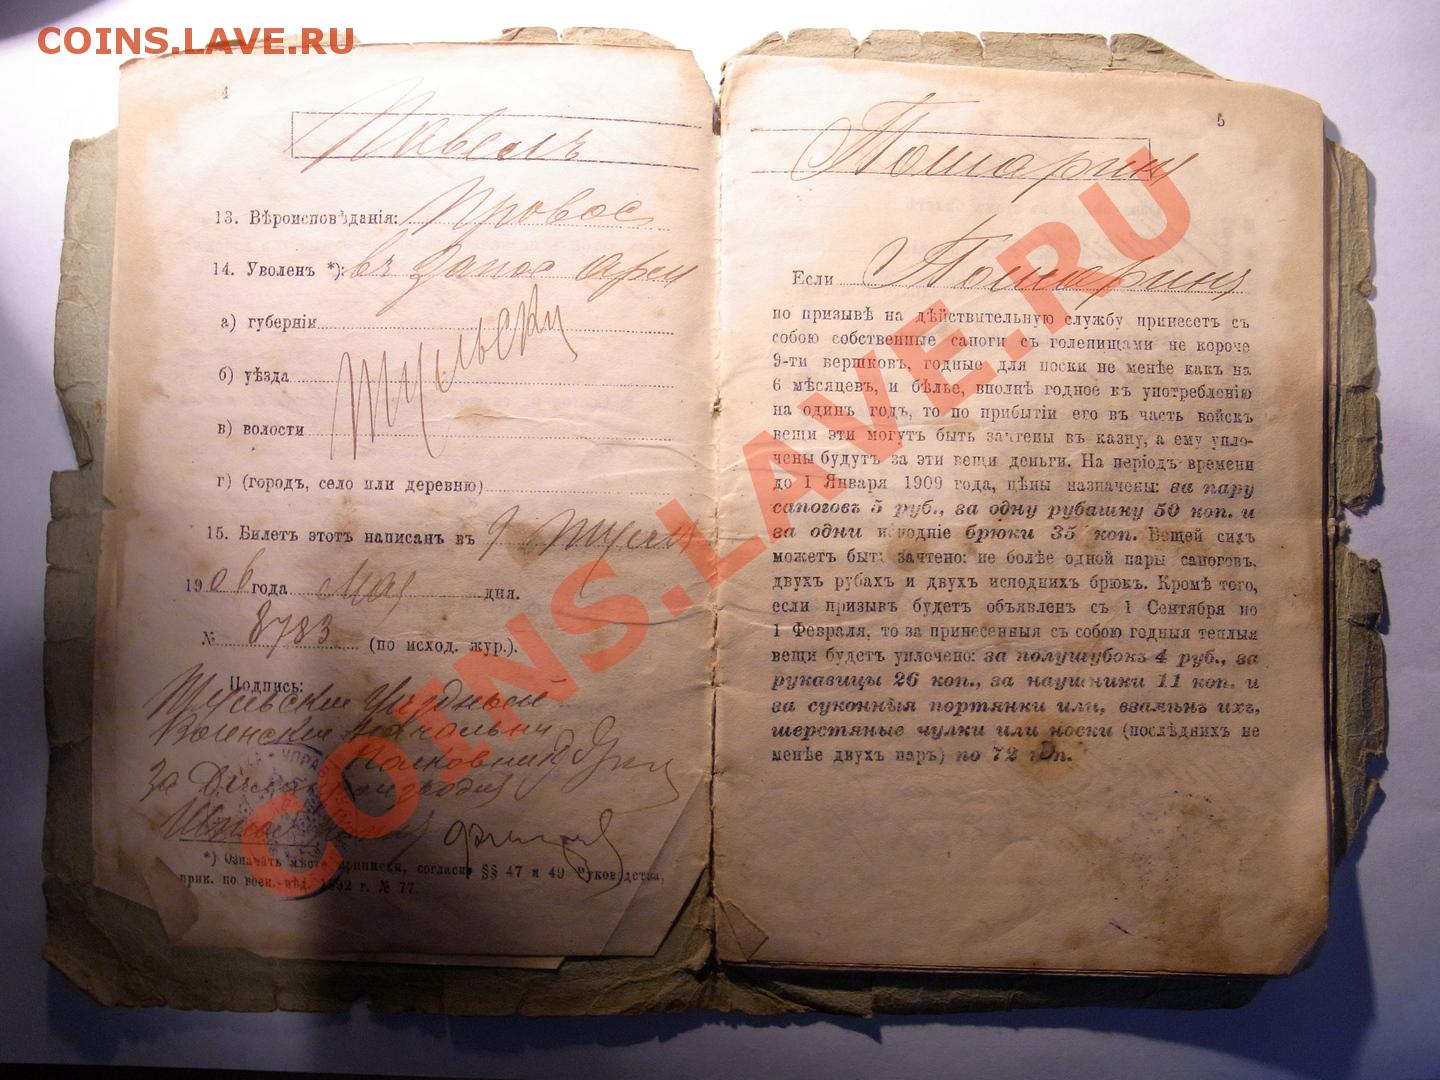 COINS.LAVE.RU
4
Павелъ
13. Вѣроисповѣданія: Правос
14. Уволенъ *): въ Запас арм
а) губерніи
Тульск
б) уѣзда
в) волости
г) (городъ, село или деревню)
15. Билетъ этотъ написанъ въ г Тул
1906 года Мая дня.
№ 8783 (по исход. жур.).
Подпись:
Тульский Уѣздный
Воинский Начальник
Полковник
За Дѣлопроизводит
*) Означать мѣсто приписки, согласно §§ 47 и 49 Руководства,
прик. по воен.-вѣд. 1892 г. № 77.
5
Пошарин
Если Пошарин
по призывѣ на дѣйствительную службу принесетъ съ
собою собственные сапоги съ голенищами не короче
9-ти вершковъ, годные для носки не менѣе какъ на
6 мѣсяцевъ, и бѣлье, вполнѣ годное къ употребленію
на одинъ годъ, то по прибытіи его въ часть войскъ
вещи эти могутъ быть зачтены въ казну, а ему упло-
чены будутъ за эти вещи деньги. На періодъ времени
до 1 Января 1909 года, цѣны назначены: за пару
сапоговъ 5 руб., за одну рубашку 50 коп. и
за одни исподніе брюки 35 коп. Вещей сихъ
можетъ быть зачтено: не болѣе одной пары сапоговъ,
двухъ рубахъ и двухъ исподнихъ брюкъ. Кромѣ того,
если призывъ будетъ объявленъ съ 1 Сентября по
1 Февраля, то за принесенныя съ собою годныя теплыя
вещи будетъ уплочено: за полушубокъ 4 руб., за
рукавицы 26 коп., за наушники 11 коп. и
за суконныя портянки или, взамѣнъ ихъ,
шерстяные чулки или носки (послѣднихъ не
менѣе двухъ паръ) по 72 коп.
COINS.LAVE.RU